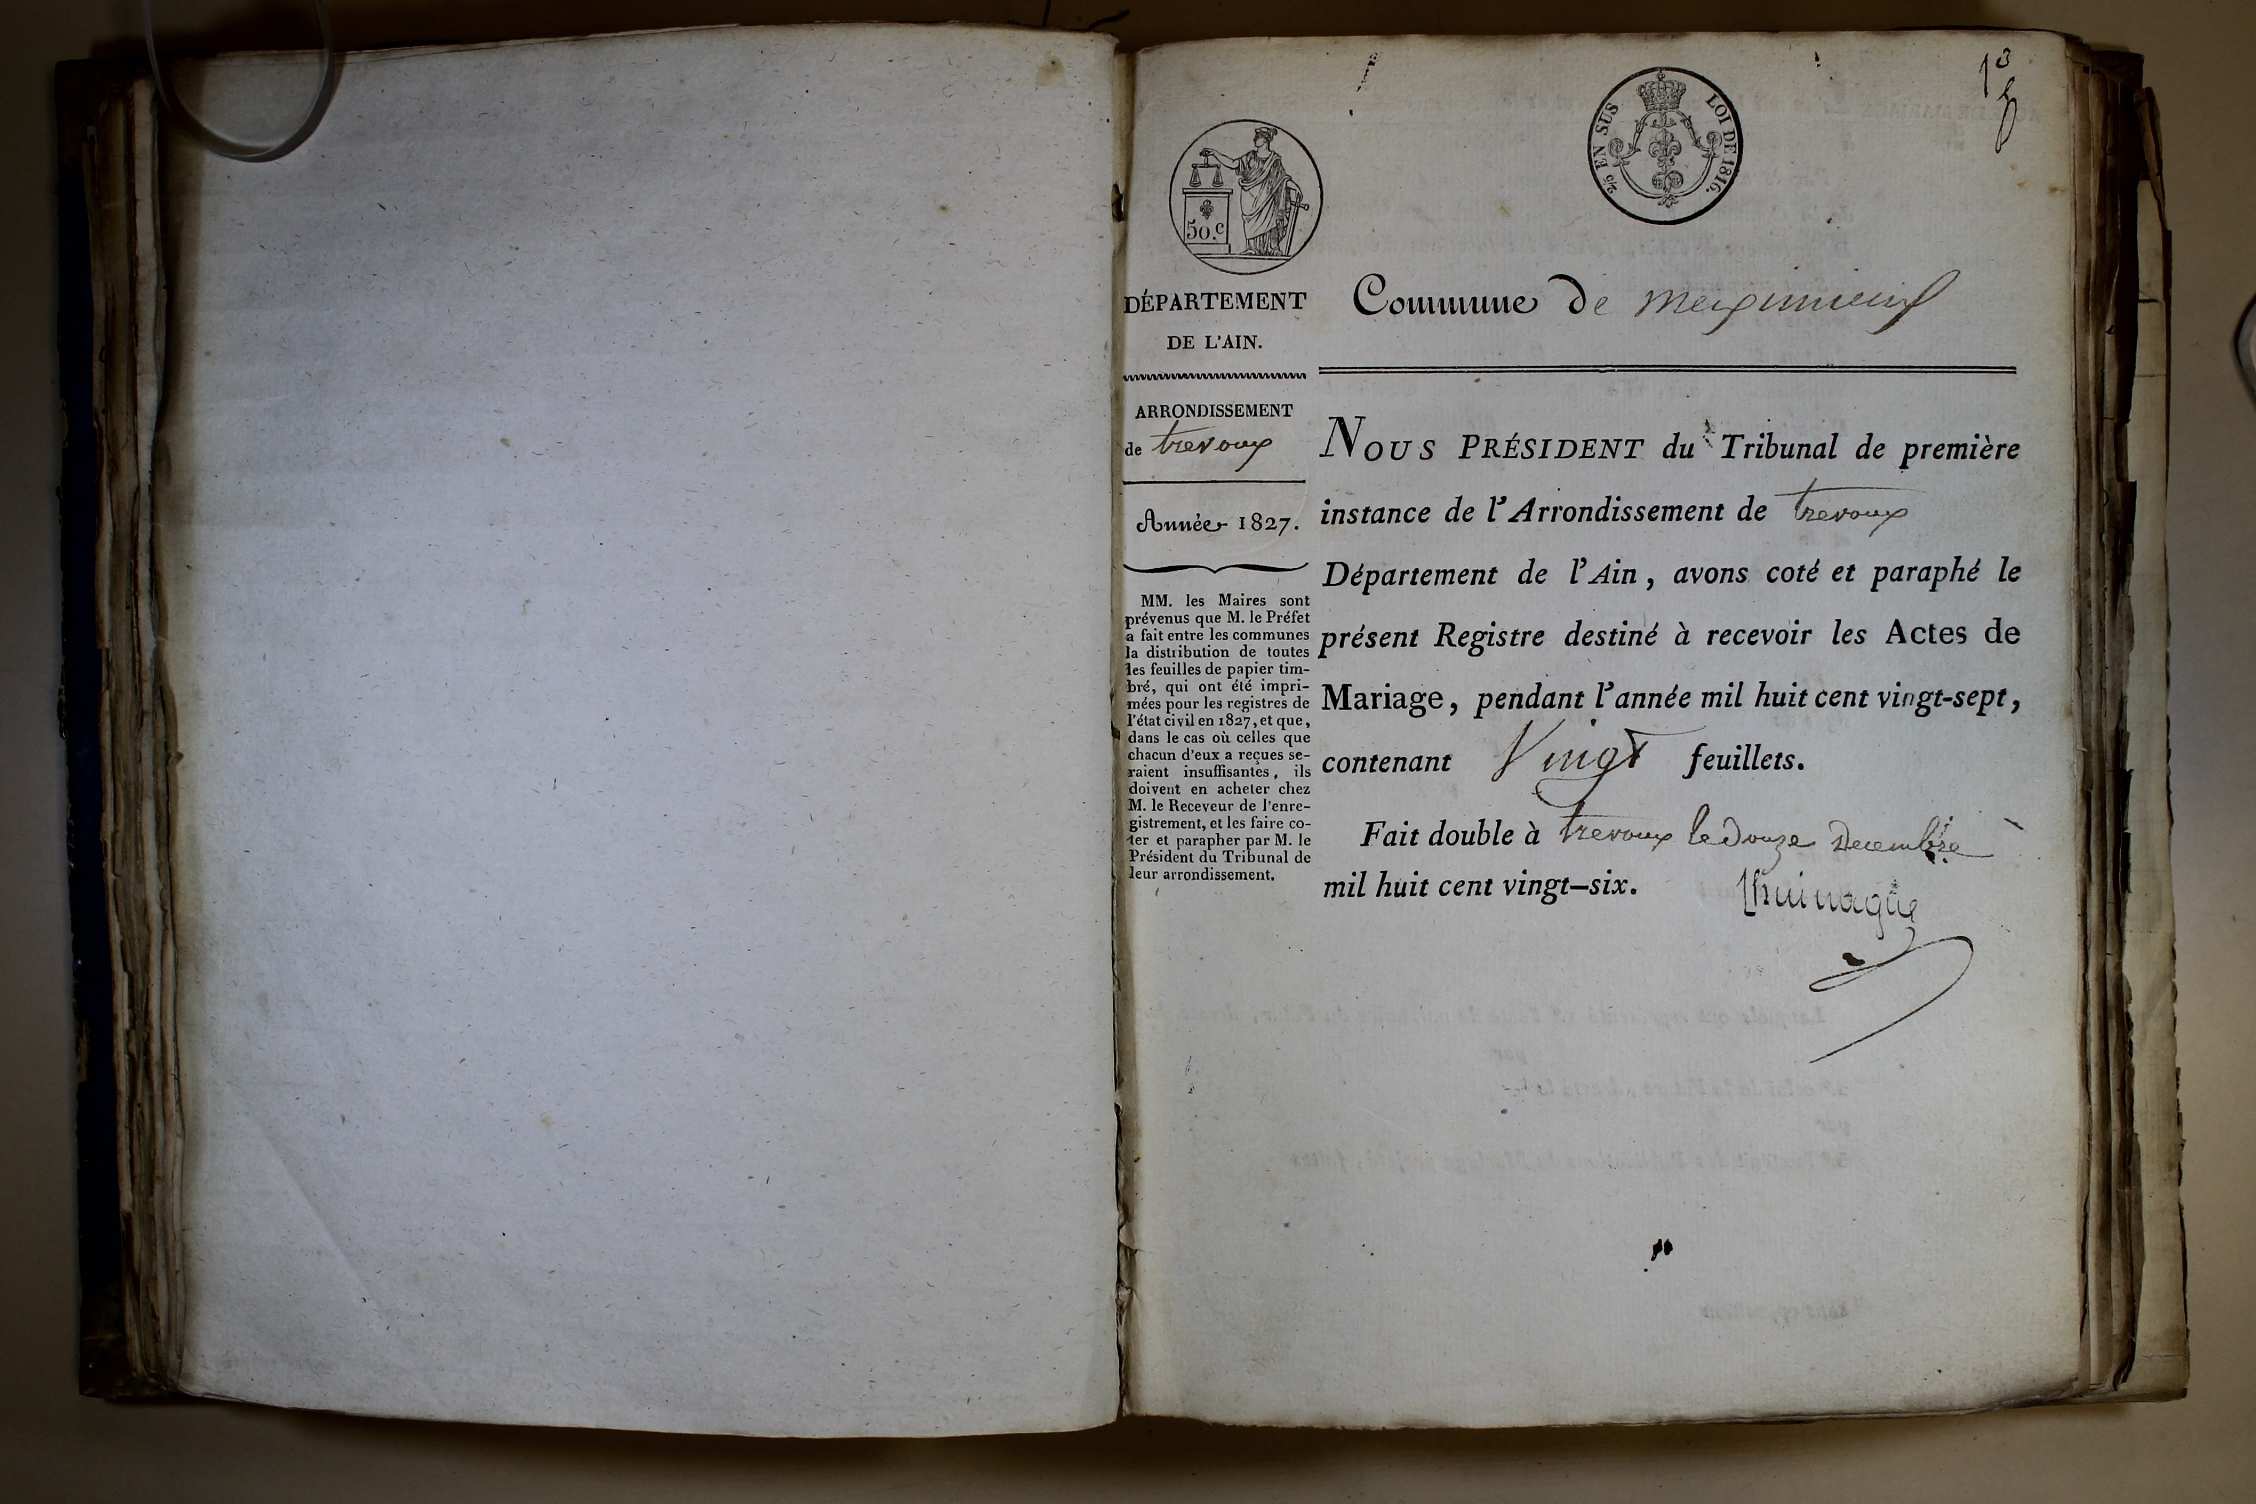 1er
25 EN SUS LOI DE 1816.
50.c
DÉPARTEMENT
DE L'AIN.
ARRONDISSEMENT
de trevoux
Année 1827.
MM. les Maires sont
prévenus que M. le Préfet
a fait entre les communes
la distribution de toutes
les feuilles de papier tim-
bré, qui ont été impri-
mées pour les registres de
l'état civil en 1827, et que,
dans le cas où celles que
chacun d'eux a reçues se-
raient insuffisantes, ils
doivent en acheter chez
M. le Receveur de l'enre-
gistrement, et les faire co-
ter et parapher par M. le
Président du Tribunal de
leur arrondissement.
Commune de meximieux
NOUS PRÉSIDENT du Tribunal de première
instance de l'Arrondissement de trevoux
Département de l'Ain, avons coté et paraphé le
présent Registre destiné à recevoir les Actes de
Mariage, pendant l'année mil huit cent vingt-sept,
contenant Vingt feuillets.
Fait double à trevoux le douze Decembre
mil huit cent vingt-six.